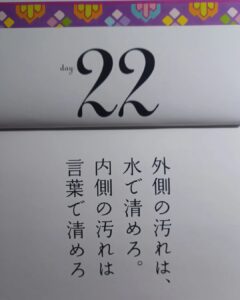 day
22
外側の汚れは、
水で清めろ。
内側の汚れは
言葉で清めろ